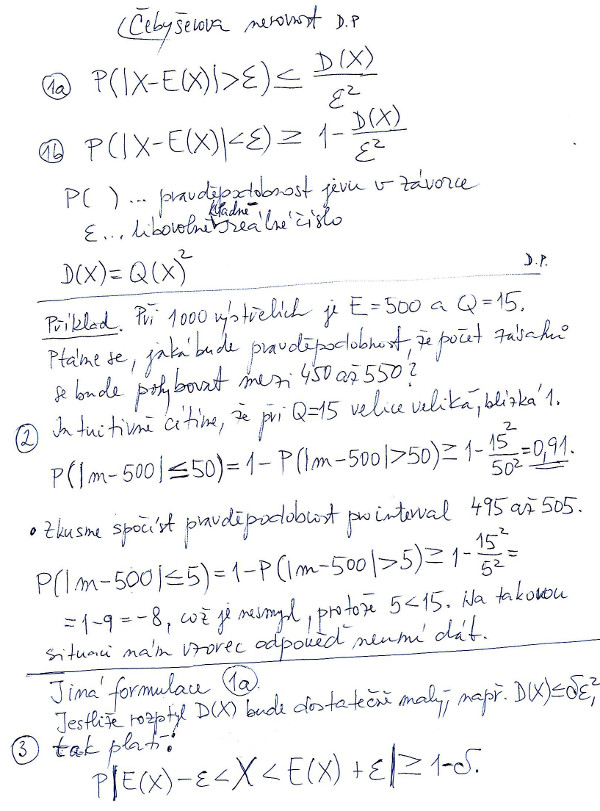 Čebyševova nerovnost D.P
1a P(|X-E(X)|>ε) ≤ D(X)/ε²
1b P(|X-E(X)|<ε) ≥ 1-D(X)/ε²
P( ) ... pravděpodobnost jevu v závorce
ε... libovolné kladné reálné číslo
D(X)=Q(X)²
D.P.
Příklad. Při 1000 výstřelích je E=500 a Q=15.
Ptáme se, jaká bude pravděpodobnost, že počet zásahů
se bude pohybovat mezi 450 až 550?
2 Intuitivně cítíme, že při Q=15 velice veliká, blízká 1.
P(|m-500|≤50)=1-P(|m-500|>50)≥1-15²/50²=0,91.
• Zkusme spočíst pravděpodobnost pro interval 495 až 505.
P(|m-500|≤5)=1-P(|m-500|>5)≥1-15²/5²=
=1-9=-8, což je nesmysl, protože 5<15. Na takovou
situaci nám vzorec odpověď neumí dát.
Jiná formulace 1a.
Jestliže rozptyl D(X) bude dostatečně malý, např. D(X)≤δε²,
3 tak platí:
P|E(X)-ε<X<E(X)+ε|≥1-δ.